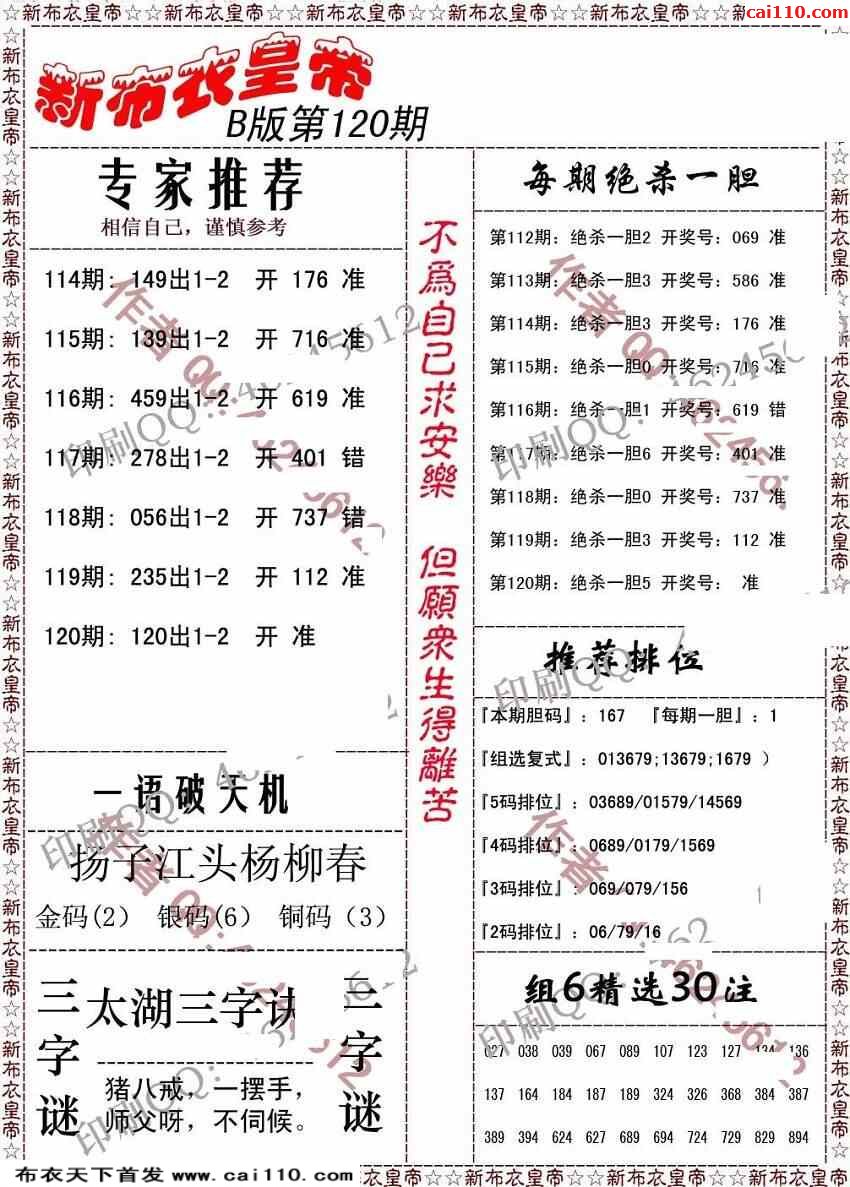 ☆新布衣皇帝☆☆新布衣皇帝☆☆新布衣皇帝☆☆新布衣皇帝☆☆新布衣皇帝☆☆新
cai110.com
新布衣皇帝
B版第120期
专家推荐
相信自己，谨慎参考
114期: 149出1-2 开 176 准
115期: 139出1-2 开 716 准
116期: 459出1-2 开 619 准
117期: 278出1-2 开 401 错
118期: 056出1-2 开 737 错
119期: 235出1-2 开 112 准
120期: 120出1-2 开 准
一语破天机
扬子江头杨柳春
金码(2) 银码(6) 铜码(3)
三字谜
太湖三字诀
猪八戒，一摆手，
师父呀，不伺候。
三字谜
不為自己求安樂 但願衆生得離苦
每期绝杀一胆
第112期: 绝杀一胆2 开奖号: 069 准
第113期: 绝杀一胆3 开奖号: 586 准
第114期: 绝杀一胆3 开奖号: 176 准
第115期: 绝杀一胆0 开奖号: 716 准
第116期: 绝杀一胆1 开奖号: 619 错
第117期: 绝杀一胆6 开奖号: 401 准
第118期: 绝杀一胆0 开奖号: 737 准
第119期: 绝杀一胆3 开奖号: 112 准
第120期: 绝杀一胆5 开奖号: 准
推荐排位
『本期胆码』: 167 『每期一胆』: 1
『组选复式』: 013679;13679;1679 )
『5码排位』: 03689/01579/14569
『4码排位』: 0689/0179/1569
『3码排位』: 069/079/156
『2码排位』: 06/79/16
组6精选30注
027 038 039 067 089 107 123 127 134 136
137 164 184 187 189 324 326 368 384 387
389 394 624 627 689 694 724 729 829 894
布衣天下首发 www.cai110.com
☆新布衣皇帝☆☆新布衣皇帝☆☆新布衣皇帝☆☆新布衣皇帝☆